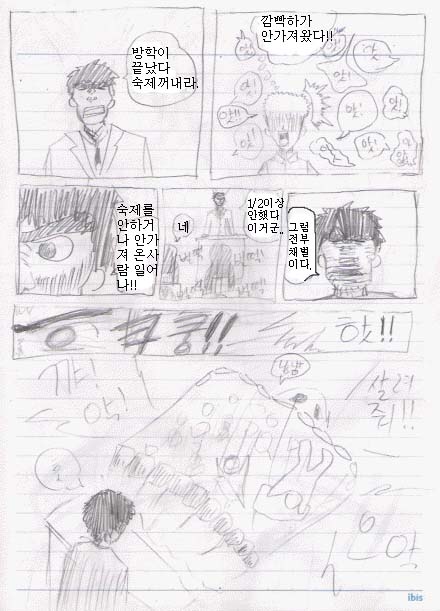 방학이
끝났다
숙제꺼내라.
깜빡하가
안가져왔다!!
앗!
앗!
앗!
앗!
앗!!
앗!
앗!
숙제를
안하거
나 안가
져 온사
람 일어
나!!
네
1/2이상
안했다
이거군..
벌떡!
벌떡!
벌떡!
그럼
전부
체벌
이다.
쿵!!
핫!!
꺄!
악!
살려
줘!!
악
ibis